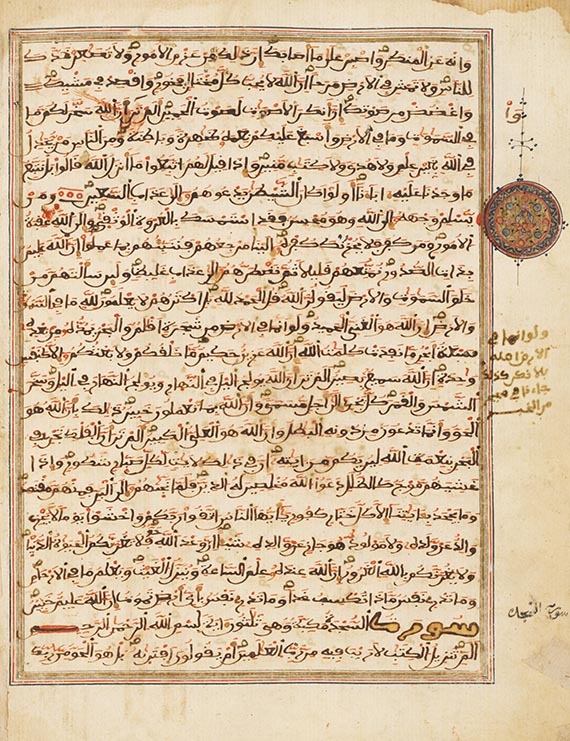 وانه عن المنكر واصبر على ما أصابك إن ذلك من عزم الأمور ولا تصعر خدك
للناس ولا تمش في الأرض مرحا إن الله لا يحب كل مختال فخور واقصد في مشيك
واغضض من صوتك إن أنكر الأصوت لصوت الحمير ألم تروا أن الله سخر لكم ما
في السموت وما في الأرض وأسبغ عليكم نعمه ظهرة وباطنة ومن الناس من يجدل
في الله بغير علم ولا هدى ولا كتب منير وإذا قيل لهم اتبعوا ما أنزل الله قالوا بل نتبع
ما وجدنا عليه ءاباءنا أولو كان الشيطن يدعوهم إلى عذاب السعير ومن
يسلم وجهه إلى الله وهو محسن فقد استمسك بالعروة الوثقى وإلى الله عقبة
الأمور ومن كفر فلا يحزنك كفره إلينا مرجعهم فننبئهم بما عملوا إن الله عليم
بذات الصدور نمتعهم قليلا ثم نضطرهم إلى عذاب غليظ ولئن سألتهم من
خلق السموت والأرض ليقولن الله قل الحمد لله بل أكثرهم لا يعلمون لله ما في السموت
والأرض إن الله هو الغني الحميد ولو أنما في الأرض من شجرة أقلم والبحر يمده من بعده
سبعة أبحر ما نفدت كلمت الله إن الله عزيز حكيم ما خلقكم ولا بعثكم إلا كنفس
وحدة إن الله سميع بصير ألم تر أن الله يولج اليل في النهار ويولج النهار في اليل وسخر
الشمس والقمر كل يجري إلى أجل مسمى وأن الله بما تعملون خبير ذلك بأن الله هو
الحق وأن ما تدعون من دونه البطل وأن الله هو العلي الكبير ألم تر أن الفلك تجري في
البحر بنعمت الله ليريكم من ءايته إن في ذلك لأيت لكل صبار شكور وإذا
غشيهم موج كالظلل دعوا الله مخلصين له الدين فلما نجيهم إلى البر فمنهم مقتصد
وما يجحد بايتنا إلا كل ختار كفور يأيها الناس اتقوا ربكم واخشوا يوما لا يجزي
والد عن ولده ولا مولود هو جاز عن والده شيئا إن وعد الله حق فلا تغرنكم الحيوة الدنيا
ولا يغرنكم بالله الغرور إن الله عنده علم الساعة وينزل الغيث ويعلم ما في الأرحام
وما تدري نفس ماذا تكسب غدا وما تدري نفس بأي أرض تموت إن الله عليم خبير
سورة السجدة مكية وهي ثلثون آية بسم الله الرحمن الرحيم
الم تنزيل الكتب لا ريب فيه من رب العلمين أم يقولون افتريه بل هو الحق من ربك
ولو أنما في
الأرض
سورة السجدة